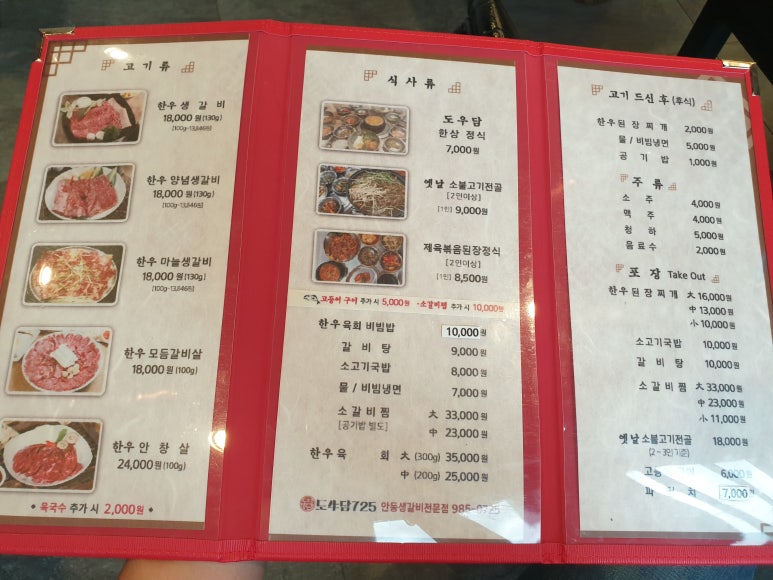 고기류
한우 생 갈 비
18,000원 (130g)
(100g-13,846원)
한우 양념생갈비
18,000원 (130g)
(100g-13,846원)
한우 마늘생갈비
18,000원 (130g)
(100g-13,846원)
한우 모듬갈비살
18,000원 (100g)
한우 안 창 살
24,000원 (100g)
육국수 추가 시 2,000원
식사류
도우담
한상 정식
7,000원
옛날 소불고기전골
[2인이상]
[1인] 9,000원
제육볶음된장정식
[2인이상]
[1인] 8,500원
고등어 구이 추가 시 5,000원 ·소갈비찜 추가 시 10,000원
한우육회 비빔밥 10,000원
갈 비 탕 9,000원
소고기국밥 8,000원
물 / 비빔냉면 7,000원
소 갈 비 찜 大 33,000원
[공기밥 별도] 中 23,000원
한 우 육 회 大 (300g) 35,000원
中 (200g) 25,000원
도牛담725 안동생갈비전문점
고기 드신 후 (후식)
한우된장찌개 2,000원
물 / 비빔냉면 5,000원
공 기 밥 1,000원
주 류
소 주 4,000원
맥 주 4,000원
청 하 5,000원
음료수 2,000원
포 장 Take Out
한우된장찌개 大 16,000원
中 13,000원
小 10,000원
소고기국밥 10,000원
갈 비 탕 10,000원
소 갈 비 찜 大 33,000원
中 23,000원
小 11,000원
옛날 소불고기전골 18,000원
[2~3인기준]
6,000원
7,000원